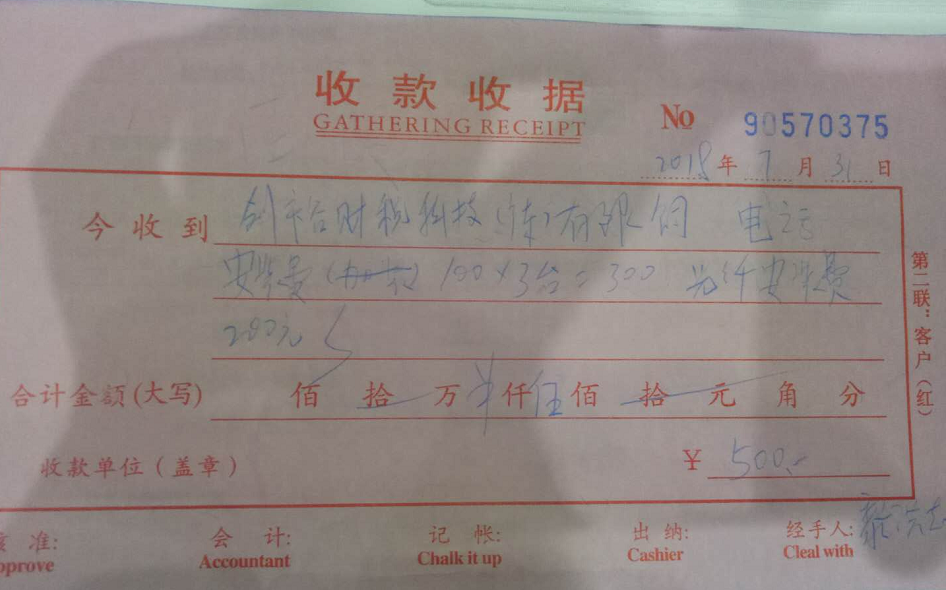 收款收据
GATHERING RECEIPT
No 90570375
2018年7月31日
今收到 财税科技 有限 电话
安装费 100×3台=300 光纤安装费
200元
合计金额(大写) 佰 拾 万 仟 伍 佰 拾 元 角 分
收款单位(盖章) ¥ 500.-
第二联:客户(红)
准: 会 计: 记 帐: 出 纳: 经手人:
pprove Accountant Chalk it up Cashier Cleal with